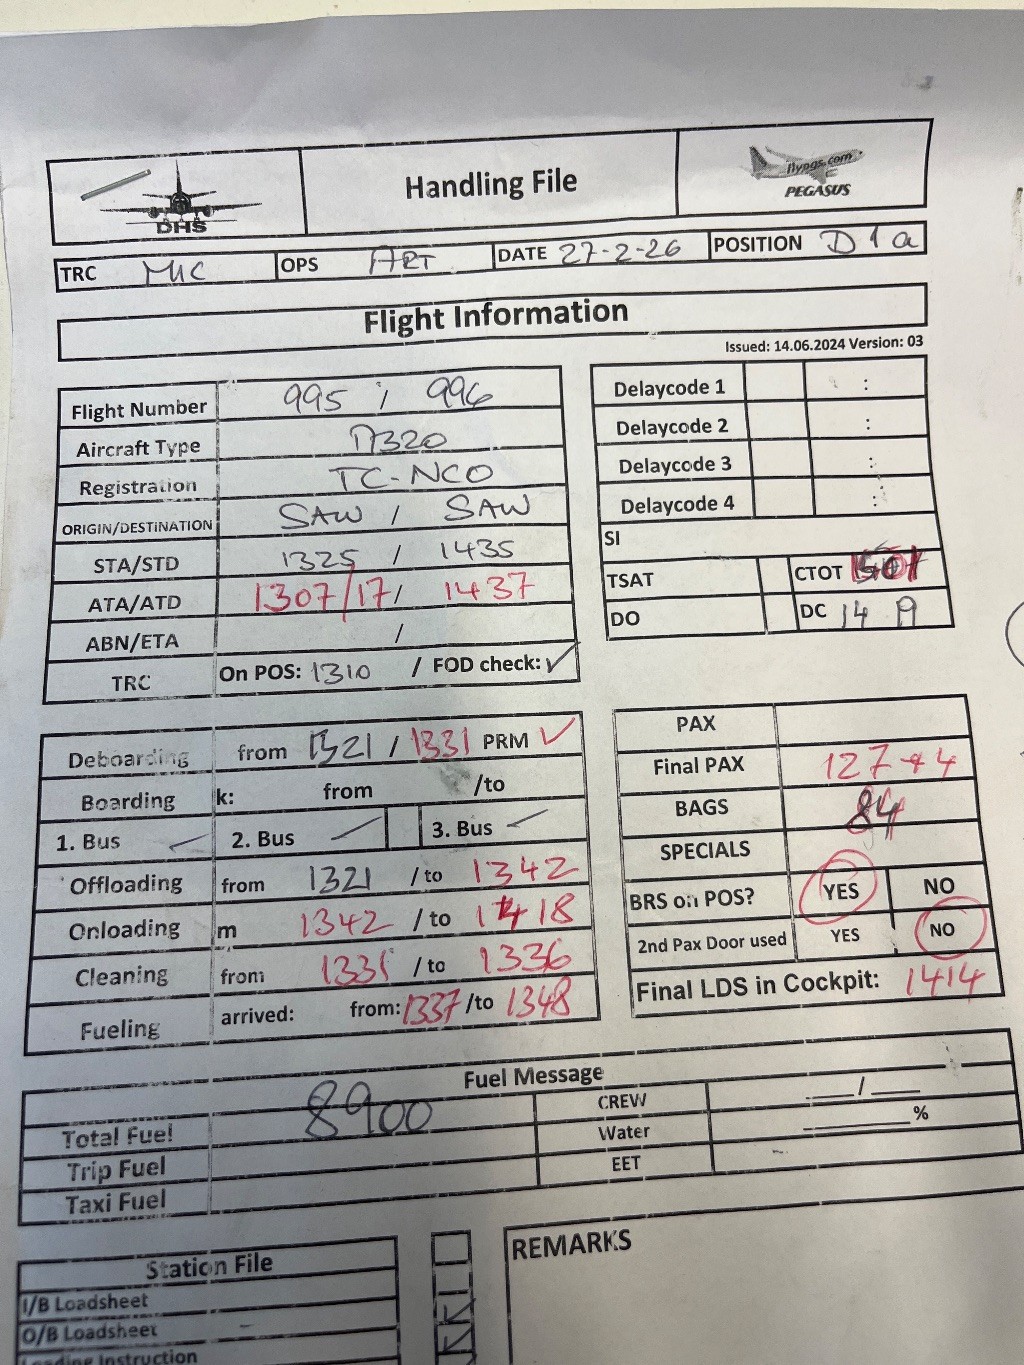 DHS
Handling File
flypgs.com
PEGASUS
TRC MIC OPS ART DATE 27-2-26 POSITION D1a
Flight Information
Issued: 14.06.2024 Version: 03
Flight Number 995 / 996
Aircraft Type A320
Registration TC-NCO
ORIGIN/DESTINATION SAW / SAW
STA/STD 1325 / 1435
ATA/ATD 1307/17 / 1437
ABN/ETA /
TRC On POS: 1310 / FOD check: ✓
Delaycode 1 :
Delaycode 2 :
Delaycode 3 :
Delaycode 4 :
SI
TSAT CTOT
DO DC 14
Deboarding from 1321 / 1331 PRM ✓
Boarding k: from /to
1. Bus 2. Bus 3. Bus
Offloading from 1321 / to 1342
Onloading m 1342 / to 1418
Cleaning from 1331 / to 1336
Fueling arrived: from: 1337 /to 1348
PAX
Final PAX 127+4
BAGS 84
SPECIALS
BRS on POS? YES NO
2nd Pax Door used YES NO
Final LDS in Cockpit: 1414
Fuel Message
Total Fuel 8900 CREW ____/____
Trip Fuel Water ________%
Taxi Fuel EET
Station File
I/B Loadsheet
O/B Loadsheet
Loading Instruction
REMARKS